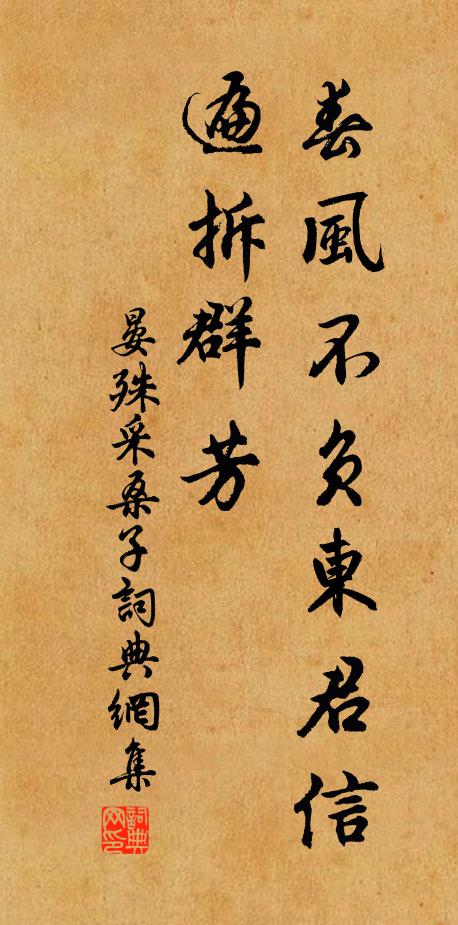 春風不負東君信
遍拆群芳
晏殊采桑子詞典網集
詞典网印